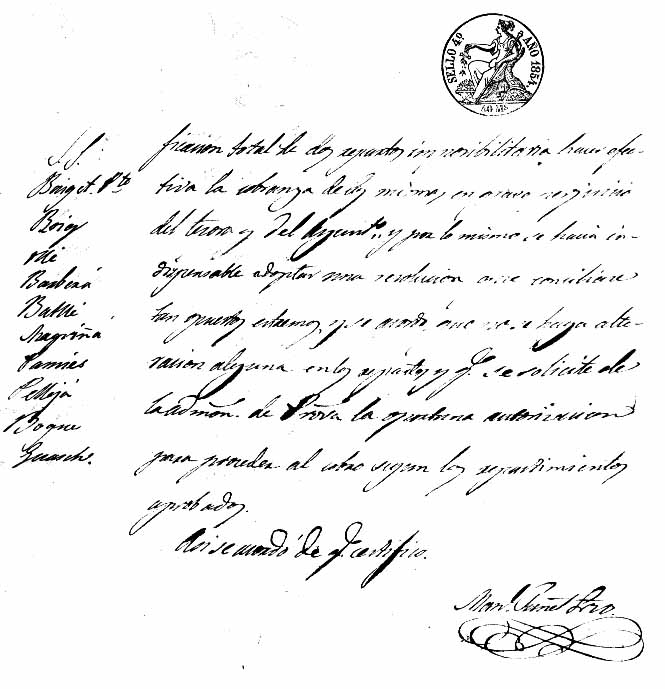 SELLO 4º AÑO 1864.
40 MS
S.S.
Baiget Pte
Boig
Barberá
Batlle
Magriñá
Pamies
Pellejá
Boque
Guasch.
total de los repartos imposibilitaria hacer efec-
tiva la cobranza de los mismos, en grave perjuicio
del tesoro y del Ayunto., y por lo mismo se hacia in-
dispensable adoptar una resolucion que conciliare
tan opuestos estremos, y se acordó, que no se haga alte-
racion alguna en los repartos y q. se solicite de
la admon. de Prova. la oportuna autorizacion
para proceder al cobro segun los repartimientos
aprobados.
Asi se acordó de q. certifico.
Man.l Srio.